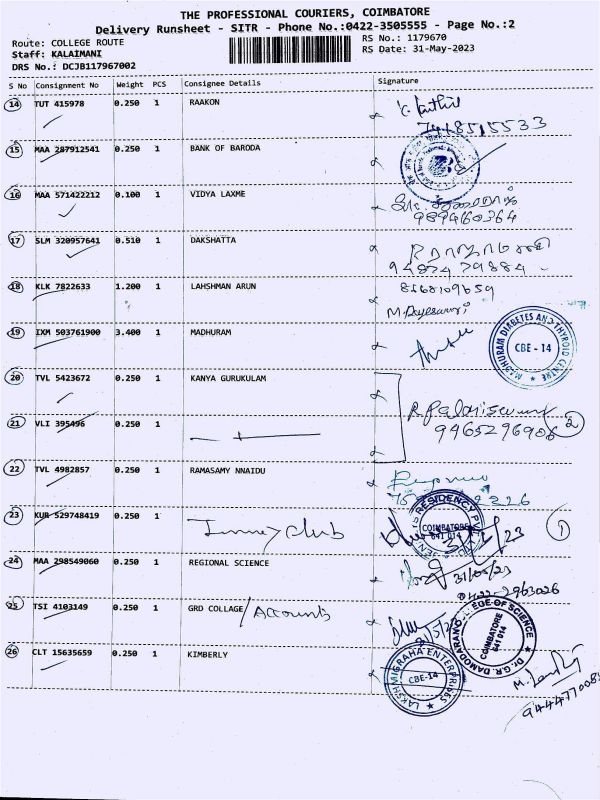 THE PROFESSIONAL COURIERS, COIMBATORE
Delivery Runsheet - SITR - Phone No.:0422-3505555 - Page No.:2
Route: COLLEGE ROUTE
RS No.: 1179670
Staff: KALAIMANI
RS Date: 31-May-2023
DRS No.: DCJB117967002
S No Consignment No Weight PCS Consignee Details Signature
14 TUT 415978 0.250 1 RAAKON
7418515533
15 MAA 287912541 0.250 1 BANK OF BARODA
16 MAA 571422212 0.100 1 VIDYA LAXME
9894160364
17 SLM 320957641 0.510 1 DAKSHATTA
9487479884
18 KLK 7822633 1.200 1 LAHSHMAN ARUN
M. Rajeswari
19 IXM 503761900 3.400 1 MADHURAM
MADHURAM DIABETES AND THYROID CENTRE
CBE - 14
20 TVL 5423672 0.250 1 KANYA GURUKULAM
21 VLI 395496 0.250 1
9965296906 2
22 TVL 4982857 0.250 1 RAMASAMY NNAIDU
23 KUR 529748419 0.250 1
club
RESIDENCY
COIMBATORE
641 014
1
24 MAA 298549060 0.250 1 REGIONAL SCIENCE
31/05/23
0422-2963026
25 TSI 4103149 0.250 1 GRD COLLAGE / Accounts
Dr. G.R. DAMODARAN COLLEGE OF SCIENCE
COIMBATORE
641 014
26 CLT 15635659 0.250 1 KIMBERLY
LAKSHMIGRAHA ENTERPRISES
CBE-14